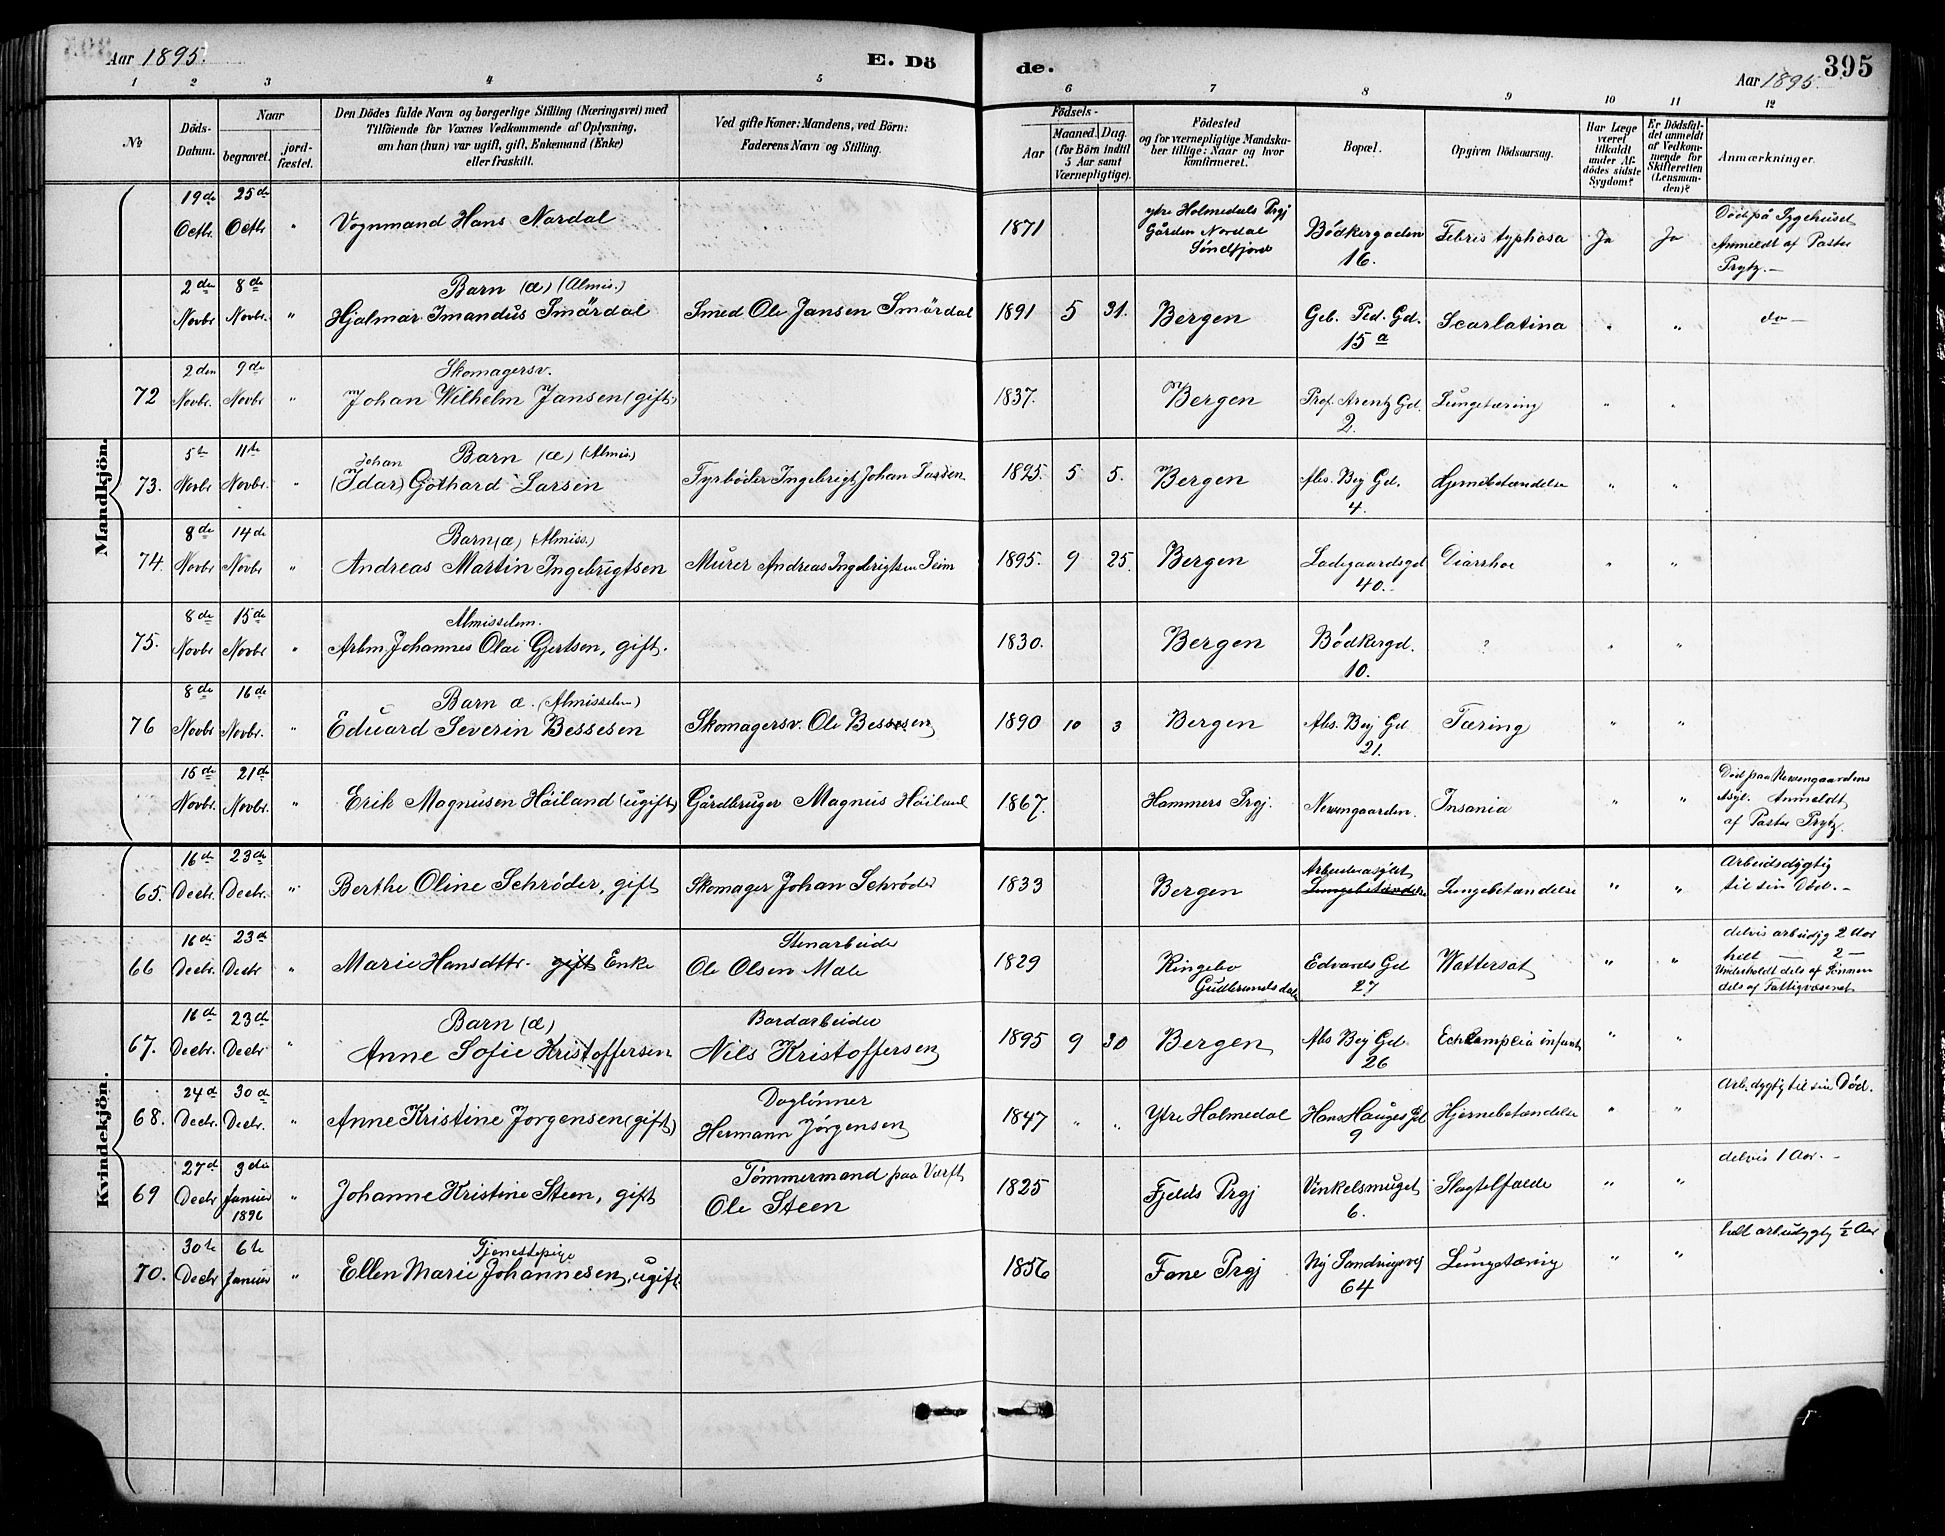 Aar 1895. E. Dö de. Aar 1895. 395
1 2 3 4 5 6 7 8 9 10 11 12
No
Döds-Datum.
Naar
begravet.
jord-fæstet.
Den Dödes fulde Navn og borgerlige Stilling (Næringsvei) med
Tilföiende for Voxnes Vedkommende af Oplysning,
om han (hun) var ugift, gift, Enkemand (Enke)
eller fraskilt.
Ved gifte Koner: Mandens, ved Börn:
Faderens Navn og Stilling.
Födsels-
Aar
Maaned. Dag.
(for Börn indtil
5 Aar samt
Værnepligtige).
Födested
og for værnepligtige Mandska-
ber tillige: Naar og hvor
konfirmeret.
Bopæl.
Opgiven Dödsaarsag.
Har Læge
været
tilkaldt
under Af-
dödes sidste
Sygdom?
Er Dödsfal-
det anmeldt
af Vedkom-
mende for
Skifteretten
(Lensman-
den)?
Anmærkninger.
Mandkjön.
19de Octbr. 25de Octbr " Vognmand Hans Nordal 1871 ytre Holmedals Prgj Gården Nordal Søndfjord Bödkergaden 16. Febris typhosa Ja Ja Död på Sygehuset Anmeldt af Pastor Prytz.-
2den Novbr 8de Novbr. " Barn (æ) (Almis.)
Hjalmar Imandus Smårdal Smed Ole Jansen Smårdal 1891 5 31. Bergen Geb. Ped. Gd. 15a Scarlatina " " do-
72 2den Novbr. 9de Novbr " Skomagersv.
Johan Wilhelm Jansen (gift) 1837. Bergen Prof. Arentz Gd. 2. Lungetæring " "
73. 5te Novbr 11te Novbr. " Johan Barn (æ) (Almis)
(Idar) Gothard Larsen Fyrbøder Ingebrigt Johan Larsen 1895 5 5. Bergen Abs. Bey Gd. 4. Hjernebetændelse " "
74. 8de Novbr 14de Novbr " Barn (æ) (Almiss.)
Andreas Martin Ingebrigtsen Murer Andreas Ingebrigtsen Seim 1895. 9 25. Bergen Ladegaardsgd 40. Diarrhoe " "
75. 8de Novbr 15de Novbr " Almisselem.
Arbm. Johannes Olai Gjertsen, gift. 1830. Bergen Bödkergd. 10. ? " "
76 8de Novbr 16de Novbr. " Barn æ. (Almisselem)
Eduard Severin Bessesen Skomagersv. Ole Bessesen 1890 10 3 Bergen Abs. Beij Gd 21. Tæring " "
15de Novbr. 21de Novbr. " Erik Magnusen Höiland (ugift) Gårdbruger Magnus Höiland 1867. Hammers Prgj. Nevengaarden. Insania " " Død paa Nevengaardens Asyl. Anmeldt af Pastor Prytz.
Kvindekjön.
65. 16de Decbr. 23de Decbr. " Berthe Oline Schrøder, gift Skomager Johan Schrøder 1833 Bergen Arbeiderasylet Lungebetændelse Lungebetændelse " " Arbeidsdygtig til sin Død.-
66 16de Decbr. 23de Decbr " Marie Hansdttr. gift Enke Stenarbeider
Ole Olsen Mæle 1829 Ringebo Gudbrandsdalen Edvards Gd 27 Wattersot " " delvis arbeidyg 2 Aar
helt — 2 —
Underholdt dels af Sønnen
dels af Fattigvæsenet
67. 16de Decbr. 23de Decbr " Barn (æ)
Anne Sofie Kristoffersen Bordarbeider
Nils Kristoffersen 1895 9 30 Bergen Abs Beij Gd 26 Echlampsia infant " "
68. 24de Decbr. 30de Decbr. " Anne Kristine Jorgensen (gift) Daglønner
Hermann Jørgensen 1847 " " Ytre Holmedal Hans Hauges Gd 9 Hjernebetændelse " " Arb.dygtig til sin Død.
69 27de Decbr 3die Januar 1896 " Johanne Kristine Steen, gift Tömmermand paa Værft
Ole Steen 1825 Fjelds Prgj Vinkelsmuget 6. Slagtilfælde " " delvis 1 Aar.-
70. 30te Decbr 6te Januar " Tjenestepige
Ellen Marie Johannesen, ugift 1856 Fane Prgj Ny Sandvigsvej 64 Lungetæring " " helt arbeidygtig ½ Aar